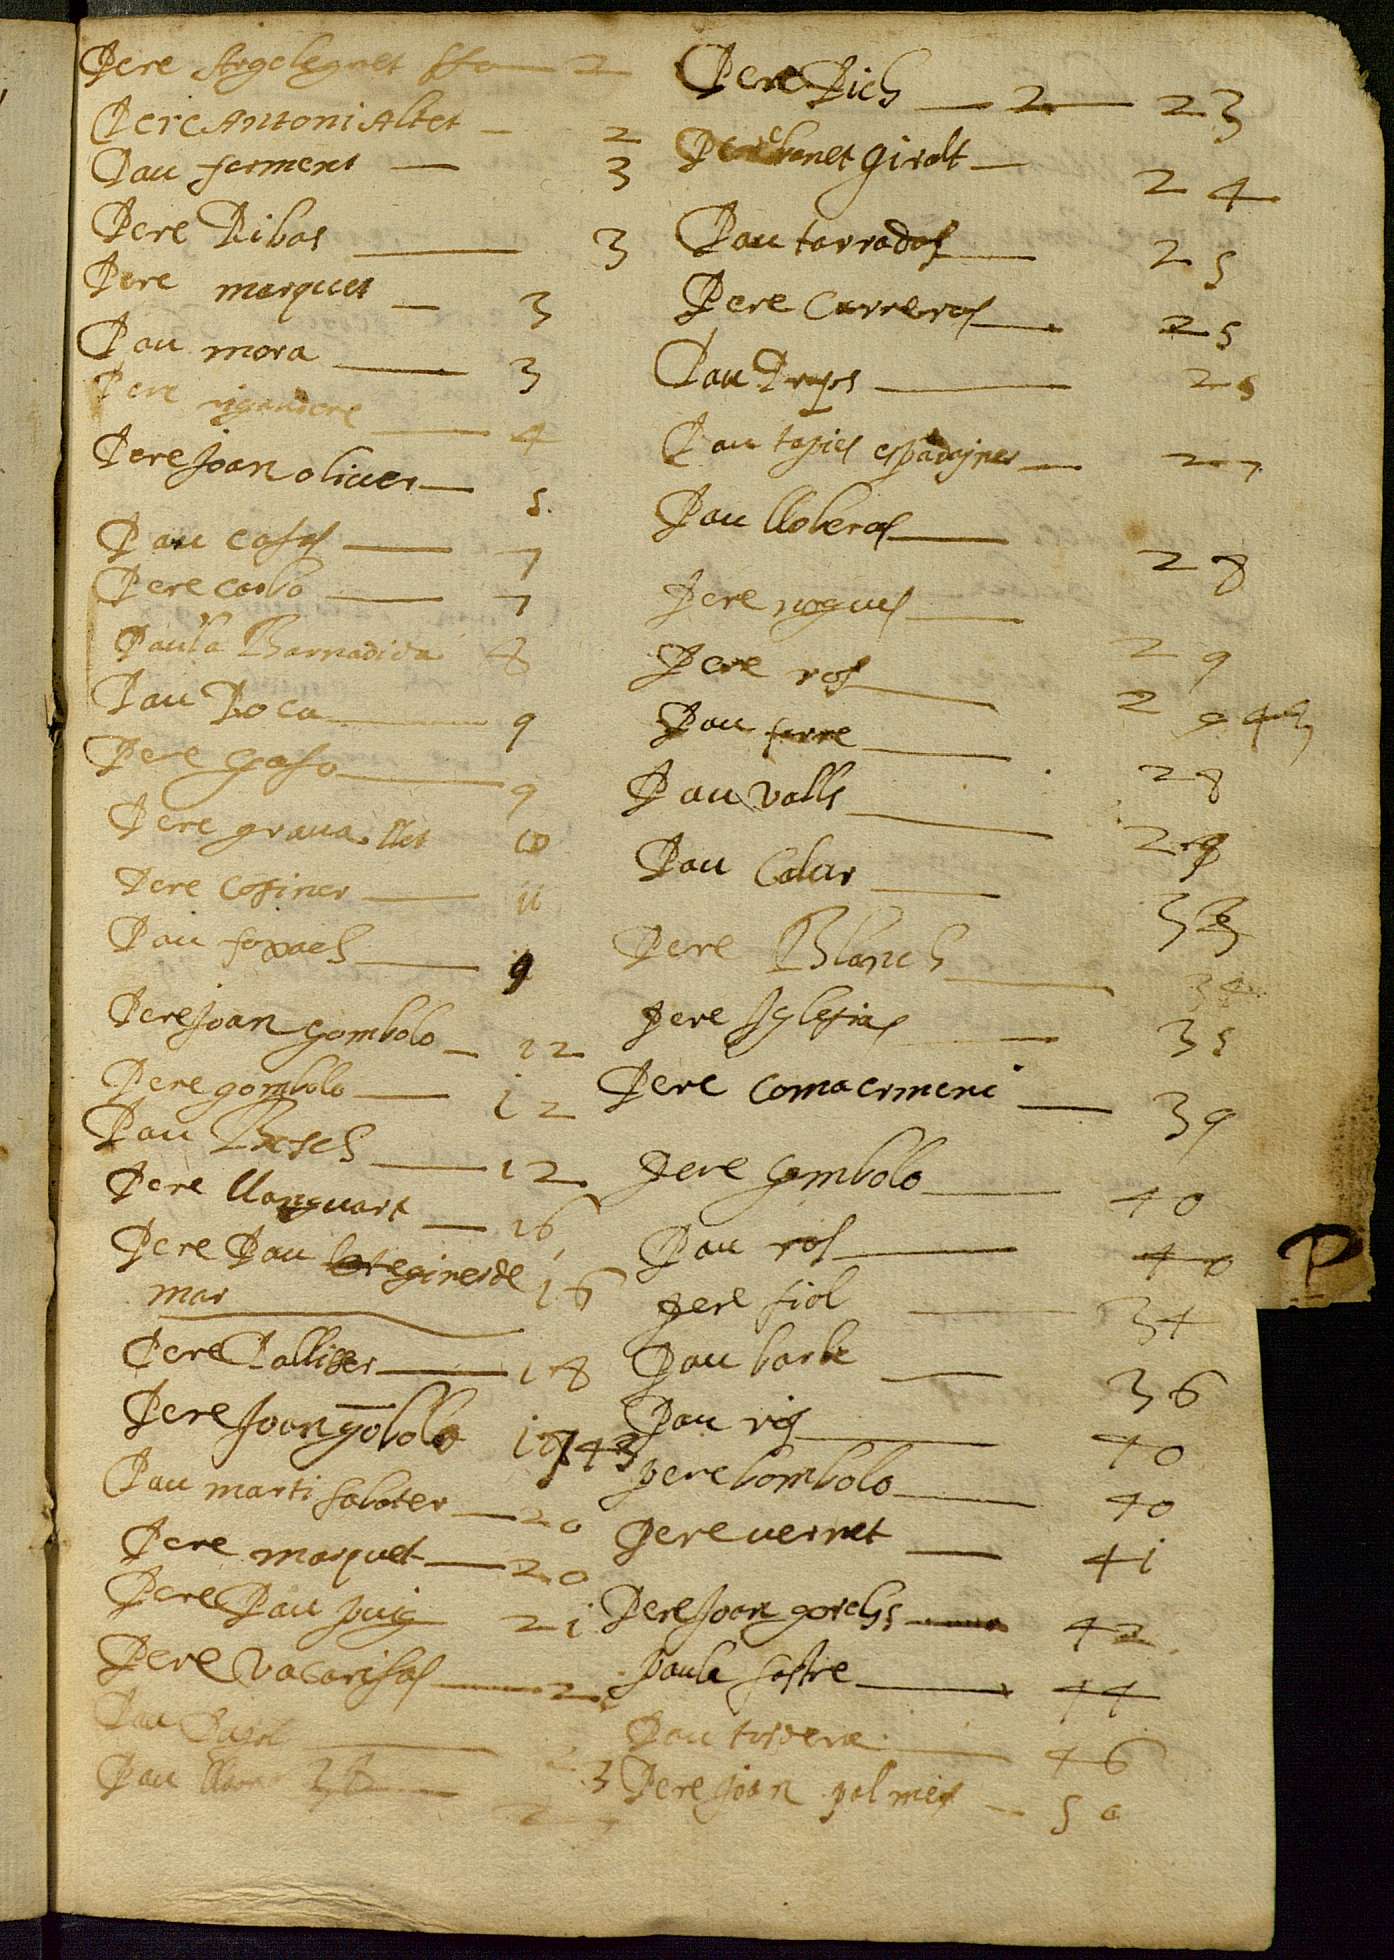 Pere Argelaguet 2
Pere Antoni Altet 2
Pau ferment 3
Pere Ribas 3
Pere marquet 3
Pau mora 3
Pere 4
Pere Joan oliuer 5
Pau casas 7
Pere carbo 7
Paula Barnadiva 8
Pau Roca 9
Pere Gaso 9
Pere grauallet 10
Pere Cosiner 11
Pau foxach 9
Pere Joan Gombolo 12
Pere gombolo 12
Pau Bosch 12
Pere llonguart 16
Pere Pau giner de 16
mar
Pere Palliser 18
Pere Joan gōbolo 19 43
Pau marti sabater 20
Pere marquet 20
Pere Pau puig 21
Pere Vacarisas
Pau Pujol
Pau
Pere Pich 2 23
Pere benet Giralt 24
Pau tarradas 25
Pere Carreras 25
Pau 25
Pau tapies espadajner 27
Pau lloberas 28
Pere nogues 29
Pere ros 29 43
Pau ferre 28
Pau valls 29
Pau Calar
Pere Blanch 34
pere Iglesias 35
Pere comaermeni 39
pere Gombolo 40
Pau ros 40
pere fiol 34
Pau barbe 36
Pau ros 40
pere bombolo 40
pere uernet 41
Pere Joan gorchs 42
paula sastre 44
Pau tordera 46
Pere Joan palmes 50
P